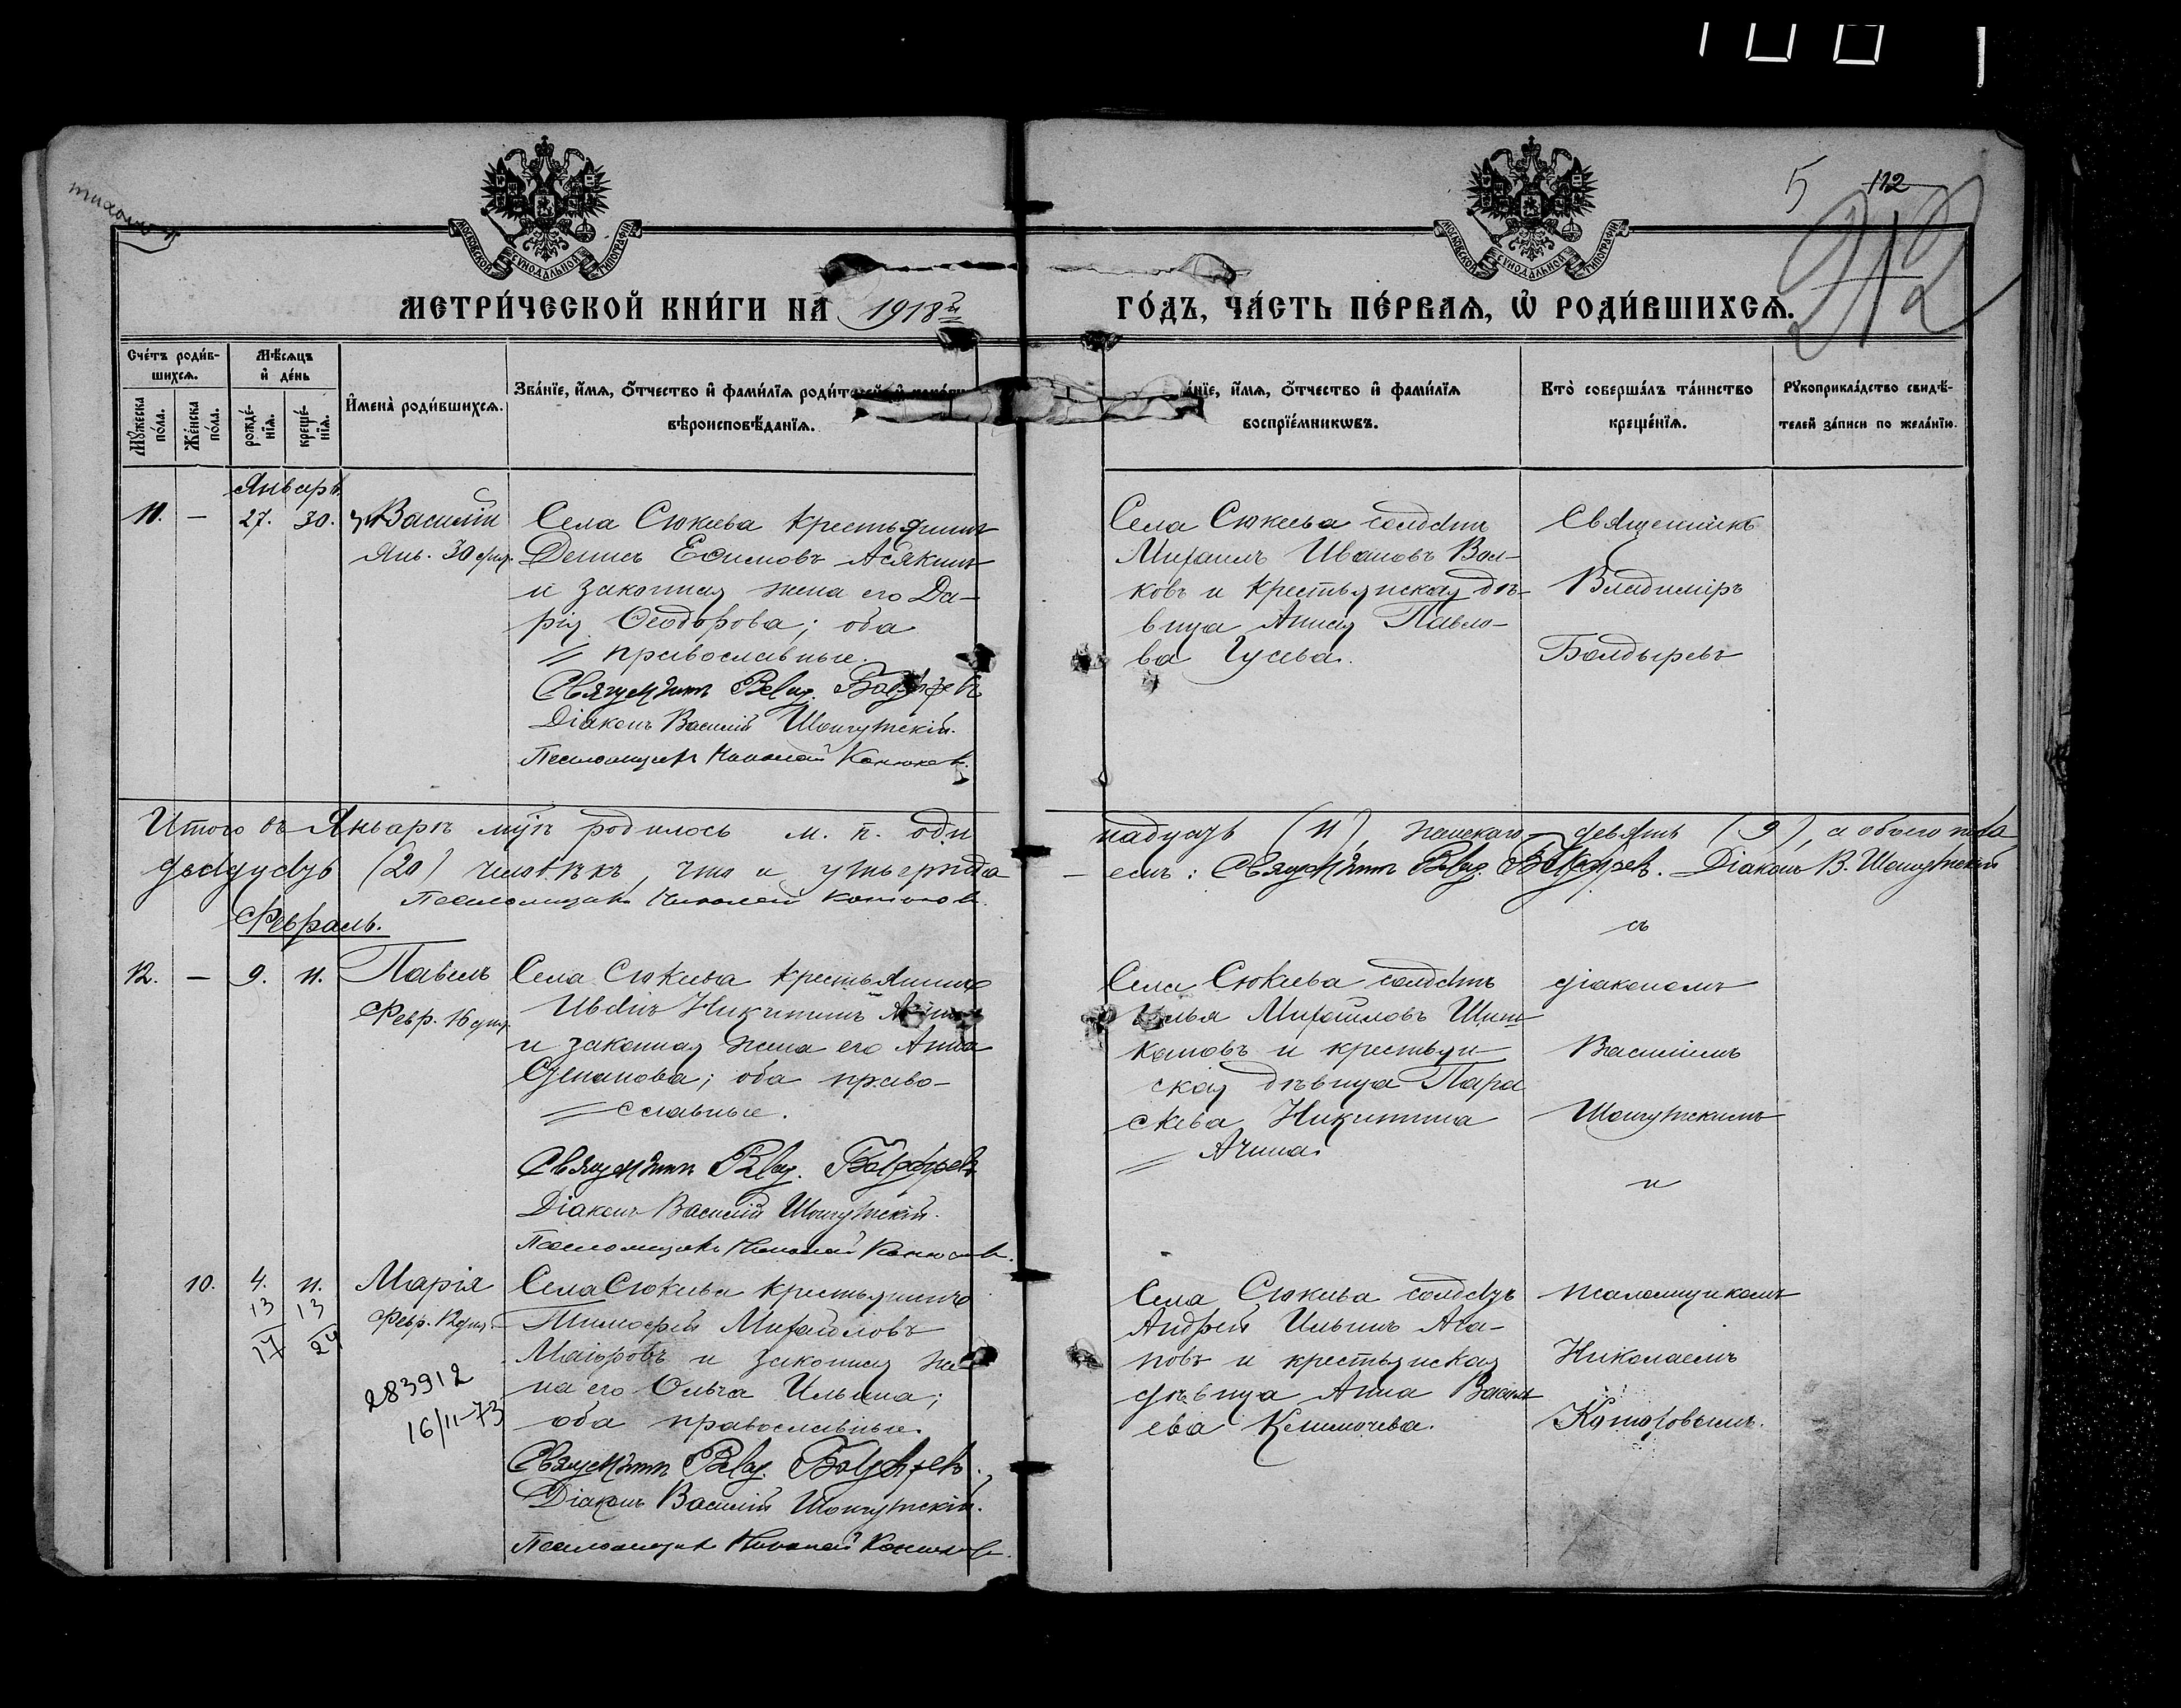 5 112
212
МОСКОВСКОЙ СУНОДАЛЬНОЙ ТИПОГРАФІИ
МОСКОВСКОЙ СУНОДАЛЬНОЙ ТИПОГРАФІИ
МЕТРИ́ЧЕСКОЙ КНИ́ГИ НА 1918й ГО́ДЪ, ЧА́СТЬ ПЕ́РВАѦ, Ѡ҆ РОДИ́ВШИХСѦ.
Сче́тъ роди́в-
шихсѧ.
Мꙋ́жеска по́ла.
Же́нска по́ла.
Мѣ́сѧцъ
и҆ де́нь
рожде́-
нїѧ.
креще́-
нїѧ.
И҆мена̀ роди́вшихсѧ.
Зва́нїе, и҆́мѧ, ѻ҆́тчество и҆ фами́лїѧ
вѣроисповѣ́данїѧ.
и҆́мѧ, ѻ҆́тчество и҆ фами́лїѧ
воспрїе́мникѡвъ.
Кто̀ соверша́лъ та́инство
креще́нїѧ.
Рꙋкоприкла́дство свидѣ́-
телей за́писи по жела́нїю.
Январь
11. — 27. 30. Василій
Янв. 30 дня.
Села Сюкеева крестьянинъ
Денисъ Ефимовъ Асякинъ
и законная жена его Да-
рія Ѳеодорова; оба
православные.
Священникъ Влад. Болдыревъ
Діаконъ Василій Шонгутскій.
Псаломщикъ Николай
Села Сюкеева солдатъ
Михаилъ Ивановъ Вол-
ковъ и крестьянская дѣ-
вица Анисія Павло-
ва Гусева.
Священникъ
Владиміръ
Болдыревъ
Итого въ Январѣ муж родилось м. п. оди надцать (11), женскаго девять (9), а обоего пола
двадцать (20) человѣкъ, что и утвержда — емъ: Священникъ Влад. Болдыревъ. Діаконъ В. Шонгутскій
Псаломщикъ Николай
Февраль.
12. — 9. 11. Павелъ
Февр. 16 дня.
Села Сюкеева крестьянинъ
Иванъ Никитинъ
и законная жена его Анна
Степанова; оба право-
славные.
Священникъ Влад. Болдыревъ
Діаконъ Василій Шонгутскій.
Псаломщикъ Николай
Села Сюкеева солдатъ
Илья Михайловъ Шиш
кановъ и крестьян-
ская дѣвица Пара
скева Никитина
Ачина
съ
діакономъ
Василіемъ
Шонгутскимъ
и
10. 4. 11. Марія
13 13
17 24
Февр. 12 дня.
283912
16/II-73
Села Сюкеева крестьянинъ
Тимофей Михайловъ
Маіоровъ и законная же
на его Ольга Ильина;
оба православные.
Священникъ Влад. Болдыревъ.
Діаконъ Василій Шонгутскій.
Псаломщикъ Николай
Села Сюкеева солдатъ
Андрей Ильинъ Ага-
повъ и крестьянская
дѣвица Анна Василь
ева
псаломщикомъ
Николаемъ